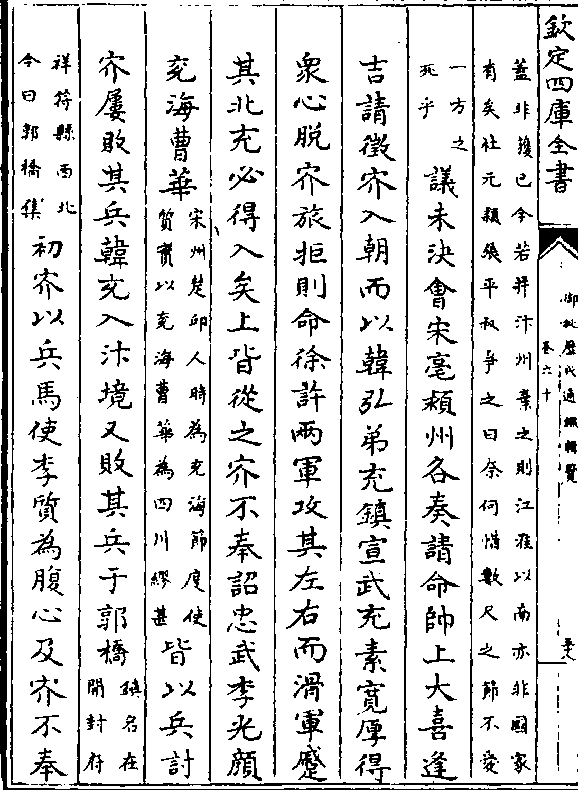 欽定四庫全書
御批歷代通鑑輯覽
卷六十
蓋非獲已今若并汴州棄之則江淮以南亦非國家
有矣杜元穎張平叔爭之曰奈何惜數尺之節不愛
一方之
死乎
議未決會宋亳潁州各奏請命帥上大喜逢
吉請徵㝏入朝而以韓弘弟充鎮宣武充素寬厚得
衆心脫㝏旅拒則命徐許兩軍攻其左右而滑軍蹙
其北充必得入矣上皆從之㝏不奉詔忠武李光顔
兗海曹華
宋州楚邱人時為兗海節度使
質實以兗海曹華為四川繆甚
皆以兵討
㝏屢敗其兵韓充入汴境又敗其兵于郭橋
鎮名在
開封府
祥符縣西北
今曰郭橋集
初㝏以兵馬使李質為腹心及㝏不奉